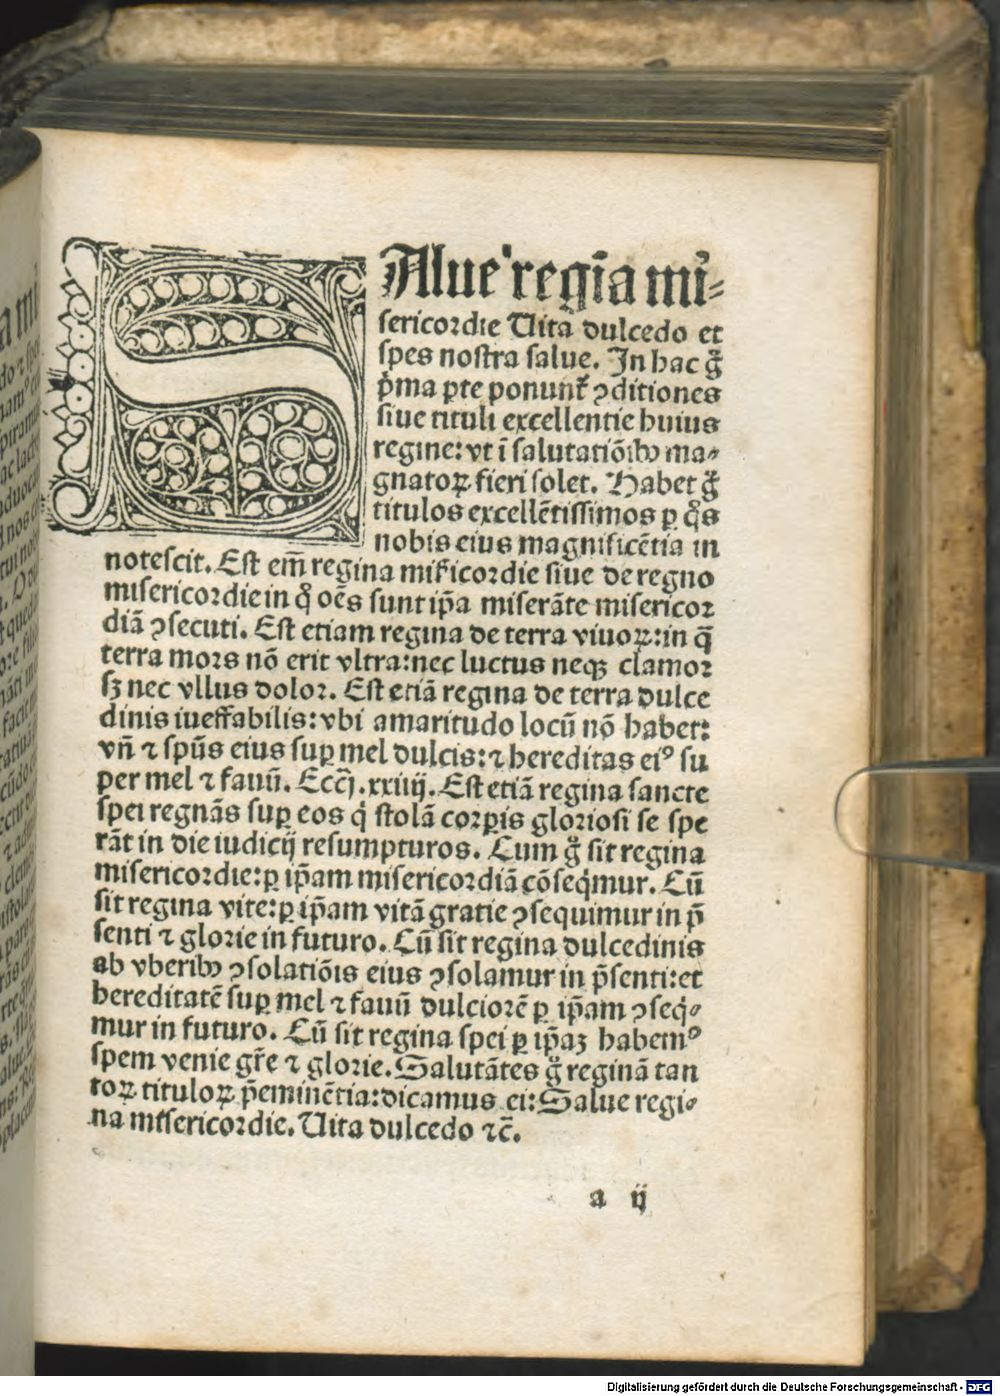 SAlue regīa mi-
sericordie Uita dulcedo et
spes nostra salue. In hac gͦ
pͥma ꝑte ponunt᷑ ꝯditiones
siue tituli excellentie huius
regine: vt ī salutatiōibꝰ ma-
gnatoꝝ fieri solet. Habet gͦ
titulos excellētissimos ꝑ qͦs
nobis eius magnificētia in
notescit. Est em̄ regina mīcordie siue de regno
misericordie in qͦ oēs sunt ip̄a miserāte misericor
diā ꝯsecuti. Est etiam regina de terra viuoꝝ: in q̄
terra mors nō erit vltra: nec luctus neqꝫ clamor
sꝫ nec vllus dolor. Est etiā regina de terra dulce
dinis iueffabilis: vbi amaritudo locū nō habet:
vn̄ ⁊ spūs eius suꝑ mel dulcis: ⁊ hereditas eiꝰ su
per mel ⁊ fauū. Ecc̄i. xxiiij. Est etiā regina sancte
spei regnās suꝑ eos qͥ stolā corꝑis gloriosi se spe
rāt in die iudicij resumpturos. Cum gͦ sit regina
misericordie: ꝑ ip̄am misericordiā cōseqͥmur. Cū
sit regina vite: ꝑ ip̄am vitā gratie ꝯsequimur in p̄
senti ⁊ glorie in futuro. Cū sit regina dulcedinis
ab vberibꝰ ꝯsolatiōis eius ꝯsolamur in p̄senti: et
hereditatē suꝑ mel ⁊ fauū dulciorē ꝑ ip̄am ꝯseqͥ-
mur in futuro. Cū sit regina spei ꝑ ip̄aꝫ habemꝰ
spem venie gr̄e ⁊ glorie. Salutātes gͦ reginā tan
toꝝ tituloꝝ p̄eminētia: dicamus ei: Salue regi-
na misericordie. Uita dulcedo ⁊c̄.
a ij
Digitalisierung gefördert durch die Deutsche Forschungsgemeinschaft - DFG